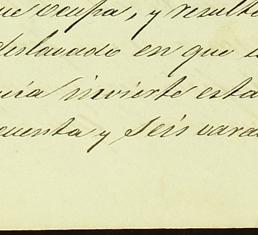 ue ocupa, y resulte
deslavado en que e
uia invierte esta
cuenta y seis varas